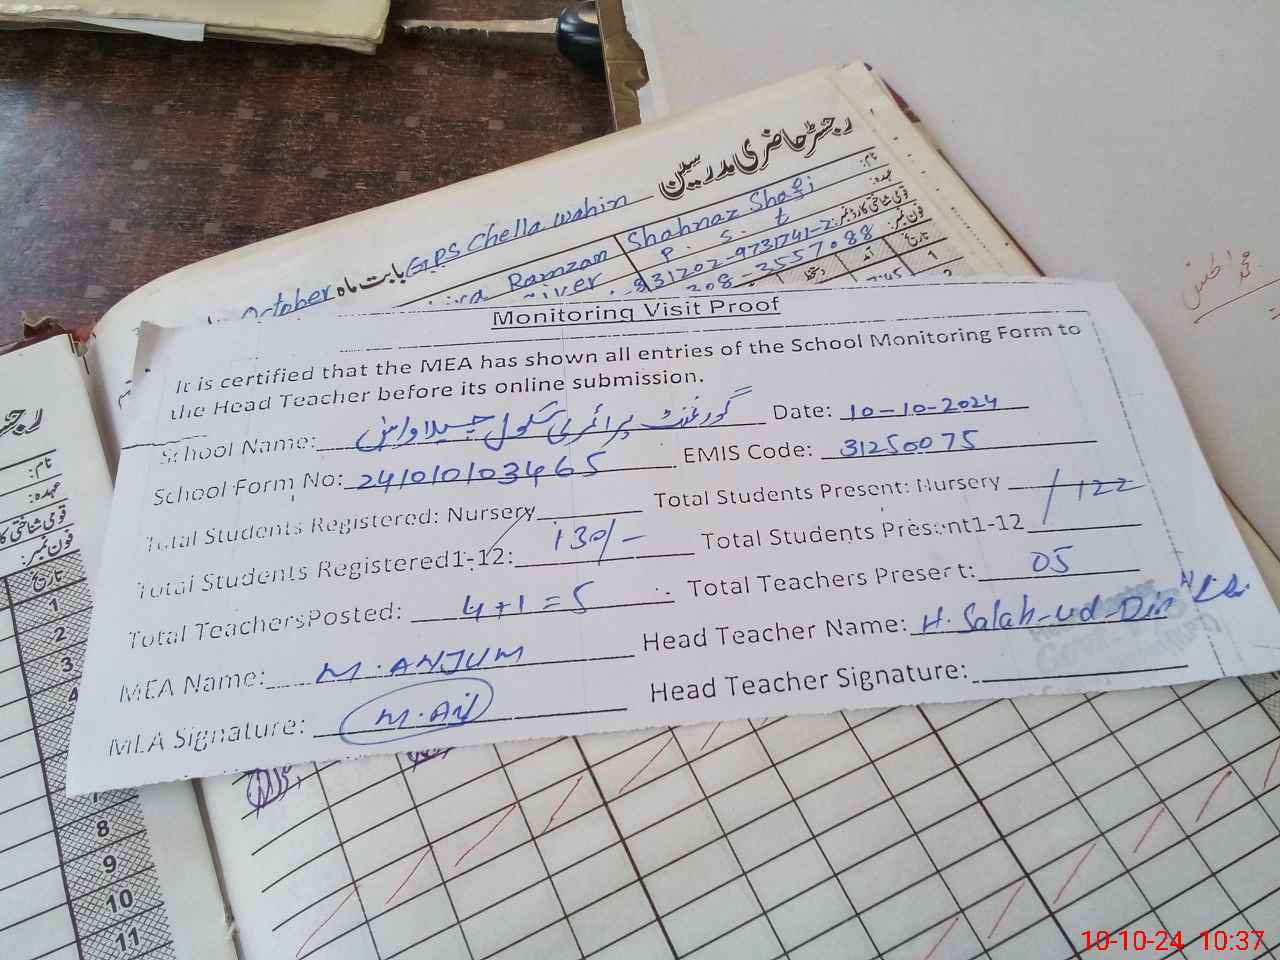 رجسٹر حاضری مدرسین
October بابت ماہ GPS Chella wahin
نام:
Ramzan Shahnaz Shafi
عہدہ:
P. S. t
قومی شناختی کارڈ نمبر:
31202-9731741-2
فون نمبر:
308-3557088
تاریخ
آمد
دستخط
1
7:45
2
Monitoring Visit Proof
It is certified that the MEA has shown all entries of the School Monitoring Form to
the Head Teacher before its online submission.
School Name: گورنمنٹ پرائمری سکول چیلاواہن Date: 10-10-2024
School Form No: 24101010103465 EMIS Code: 31250075
Total Students Registered: Nursery Total Students Present: Nursery
Total Students Registered1-12: 130/- Total Students Present1-12 122
Total TeachersPosted: 4+1=5 Total Teachers Present: 05
MEA Name: M. ANJUM Head Teacher Name: H. Salah-ud-Din
MEA Signature: Head Teacher Signature:
نام:
عہدہ:
فون نمبر:
تاریخ
1
2
3
4
7
8
9
10
11
10-10-24 10:37